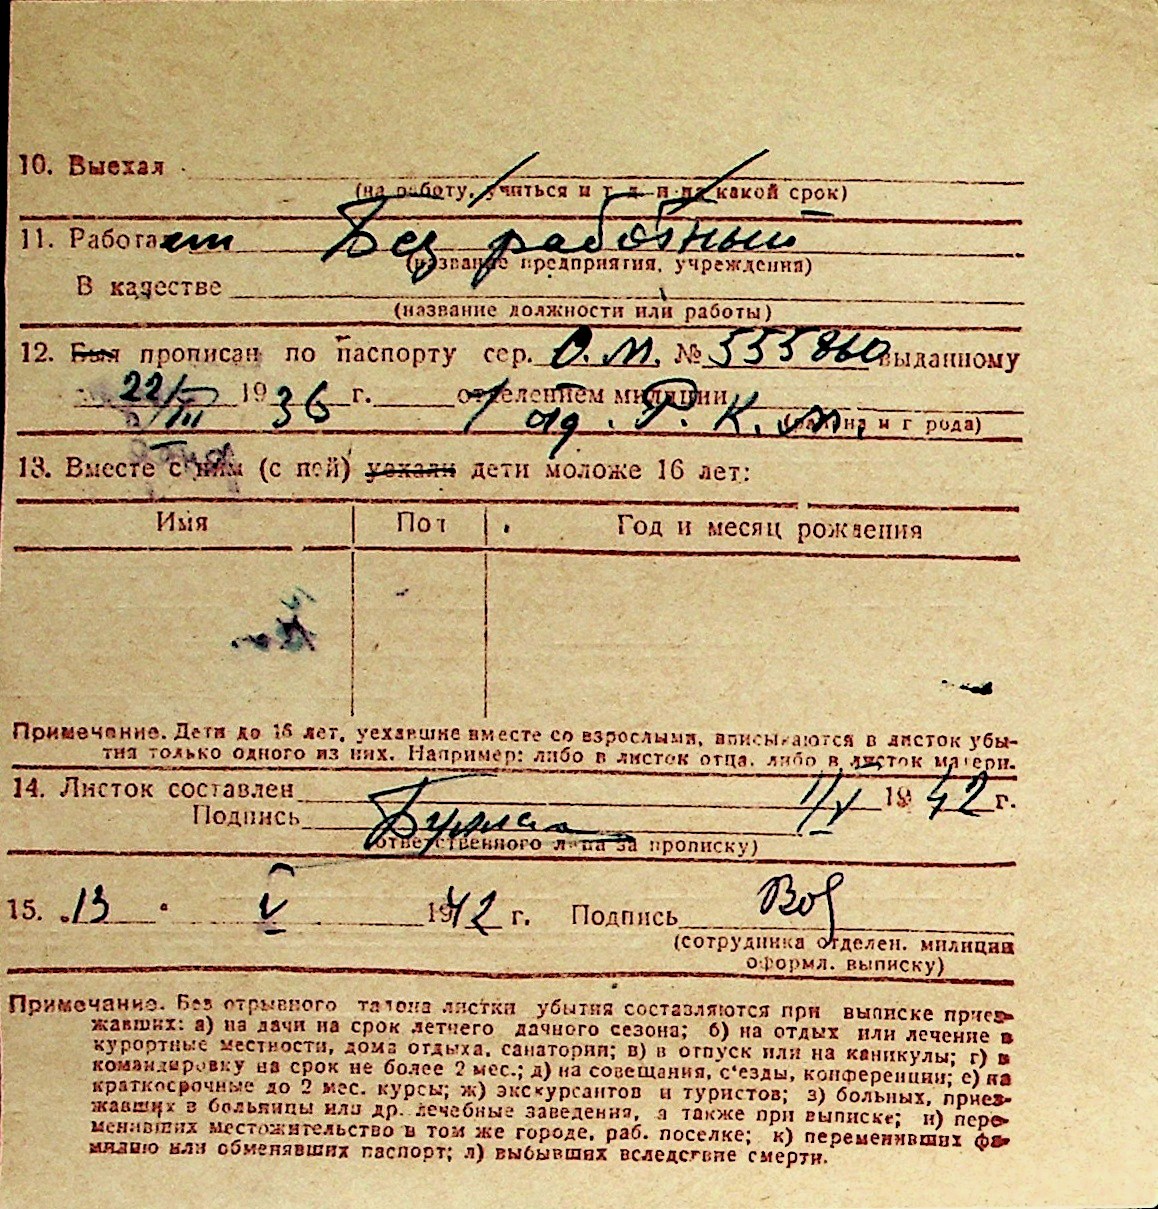 10. Выехал
(на работу, учиться и т. д. и на какой срок)
11. Работает Без работный
(название предприятия, учреждения)
В качестве
(название должности или работы)
12. Был прописан по паспорту сер. О.М. № 555860 выданному
22/III 1936 г. 1 отделением милиции
од. Р. К. М.
(района и города)
13. Вместе с ним (с ней) уехали дети моложе 16 лет:
Имя Пол Год и месяц рождения
Примечание. Дети до 16 лет, уехавшие вместе со взрослыми, вписываются в листок убы-
тия только одного из них. Например: либо в листок отца, либо в листок матери.
14. Листок составлен 11/V 1942 г.
Подпись
(ответственного лица за прописку)
15. 13 V 1942 г. Подпись
(сотрудника отделен. милиции
оформл. выписку)
Примечание. Без отрывного талона листки убытия составляются при выписке приез-
жавших: а) на дачи на срок летнего дачного сезона; б) на отдых или лечение в
курортные местности, дома отдыха, санатории; в) в отпуск или на каникулы; г) в
командировку на срок не более 2 мес.; д) на совещания, с'езды, конференции; е) на
краткосрочные до 2 мес. курсы; ж) экскурсантов и туристов; з) больных, приез-
жавших в больницы или др. лечебные заведения, а также при выписке; и) пере-
менивших местожительство в том же городе, раб. поселке; к) переменивших фа-
милию или обменявших паспорт; л) выбывших вследствие смерти.